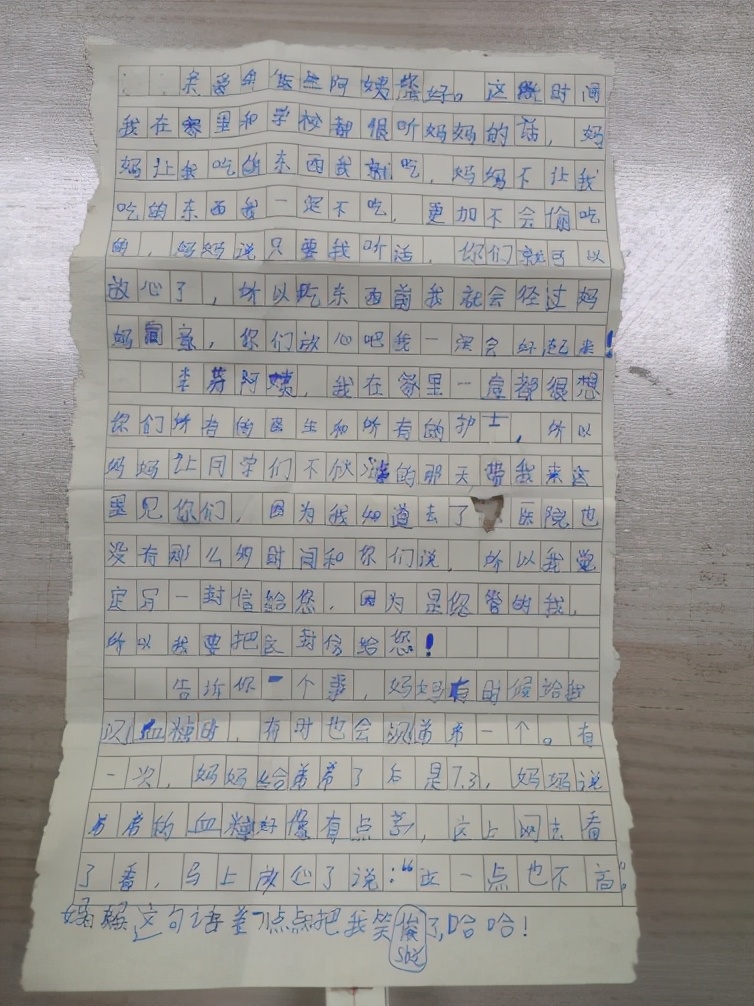 亲爱的医生阿姨您好。这段时间
我在家里和学校都很听妈妈的话，妈
妈让我吃的东西我就吃，妈妈不让我
吃的东西我一定不吃，更加不会偷吃
的，妈妈说只要我听话，你们就可以
放心了，所以吃东西前我就会经过妈
妈同意，你们放心吧我一定会好起来！
李芬阿姨，我在家里一直都很想
你们所有的医生和所有的护士，所以
妈妈让同学们不放的那天带我来这
里见你们，因为我知道去了医院也
没有那么多时间和你们说，所以我决
定写一封信给您，因为是您管的我，
所以我要把这封信给您！
告诉你一个事，妈妈有时候给我
测血糖时，有时也会测弟弟一个。有
一次，妈妈给弟弟了后是7.3，妈妈说
弟弟的血糖好像有点高，这上网去看
了看，马上放心了说：“这一点也不高”。
妈妈这句话差一点点把我笑傻了，哈哈！